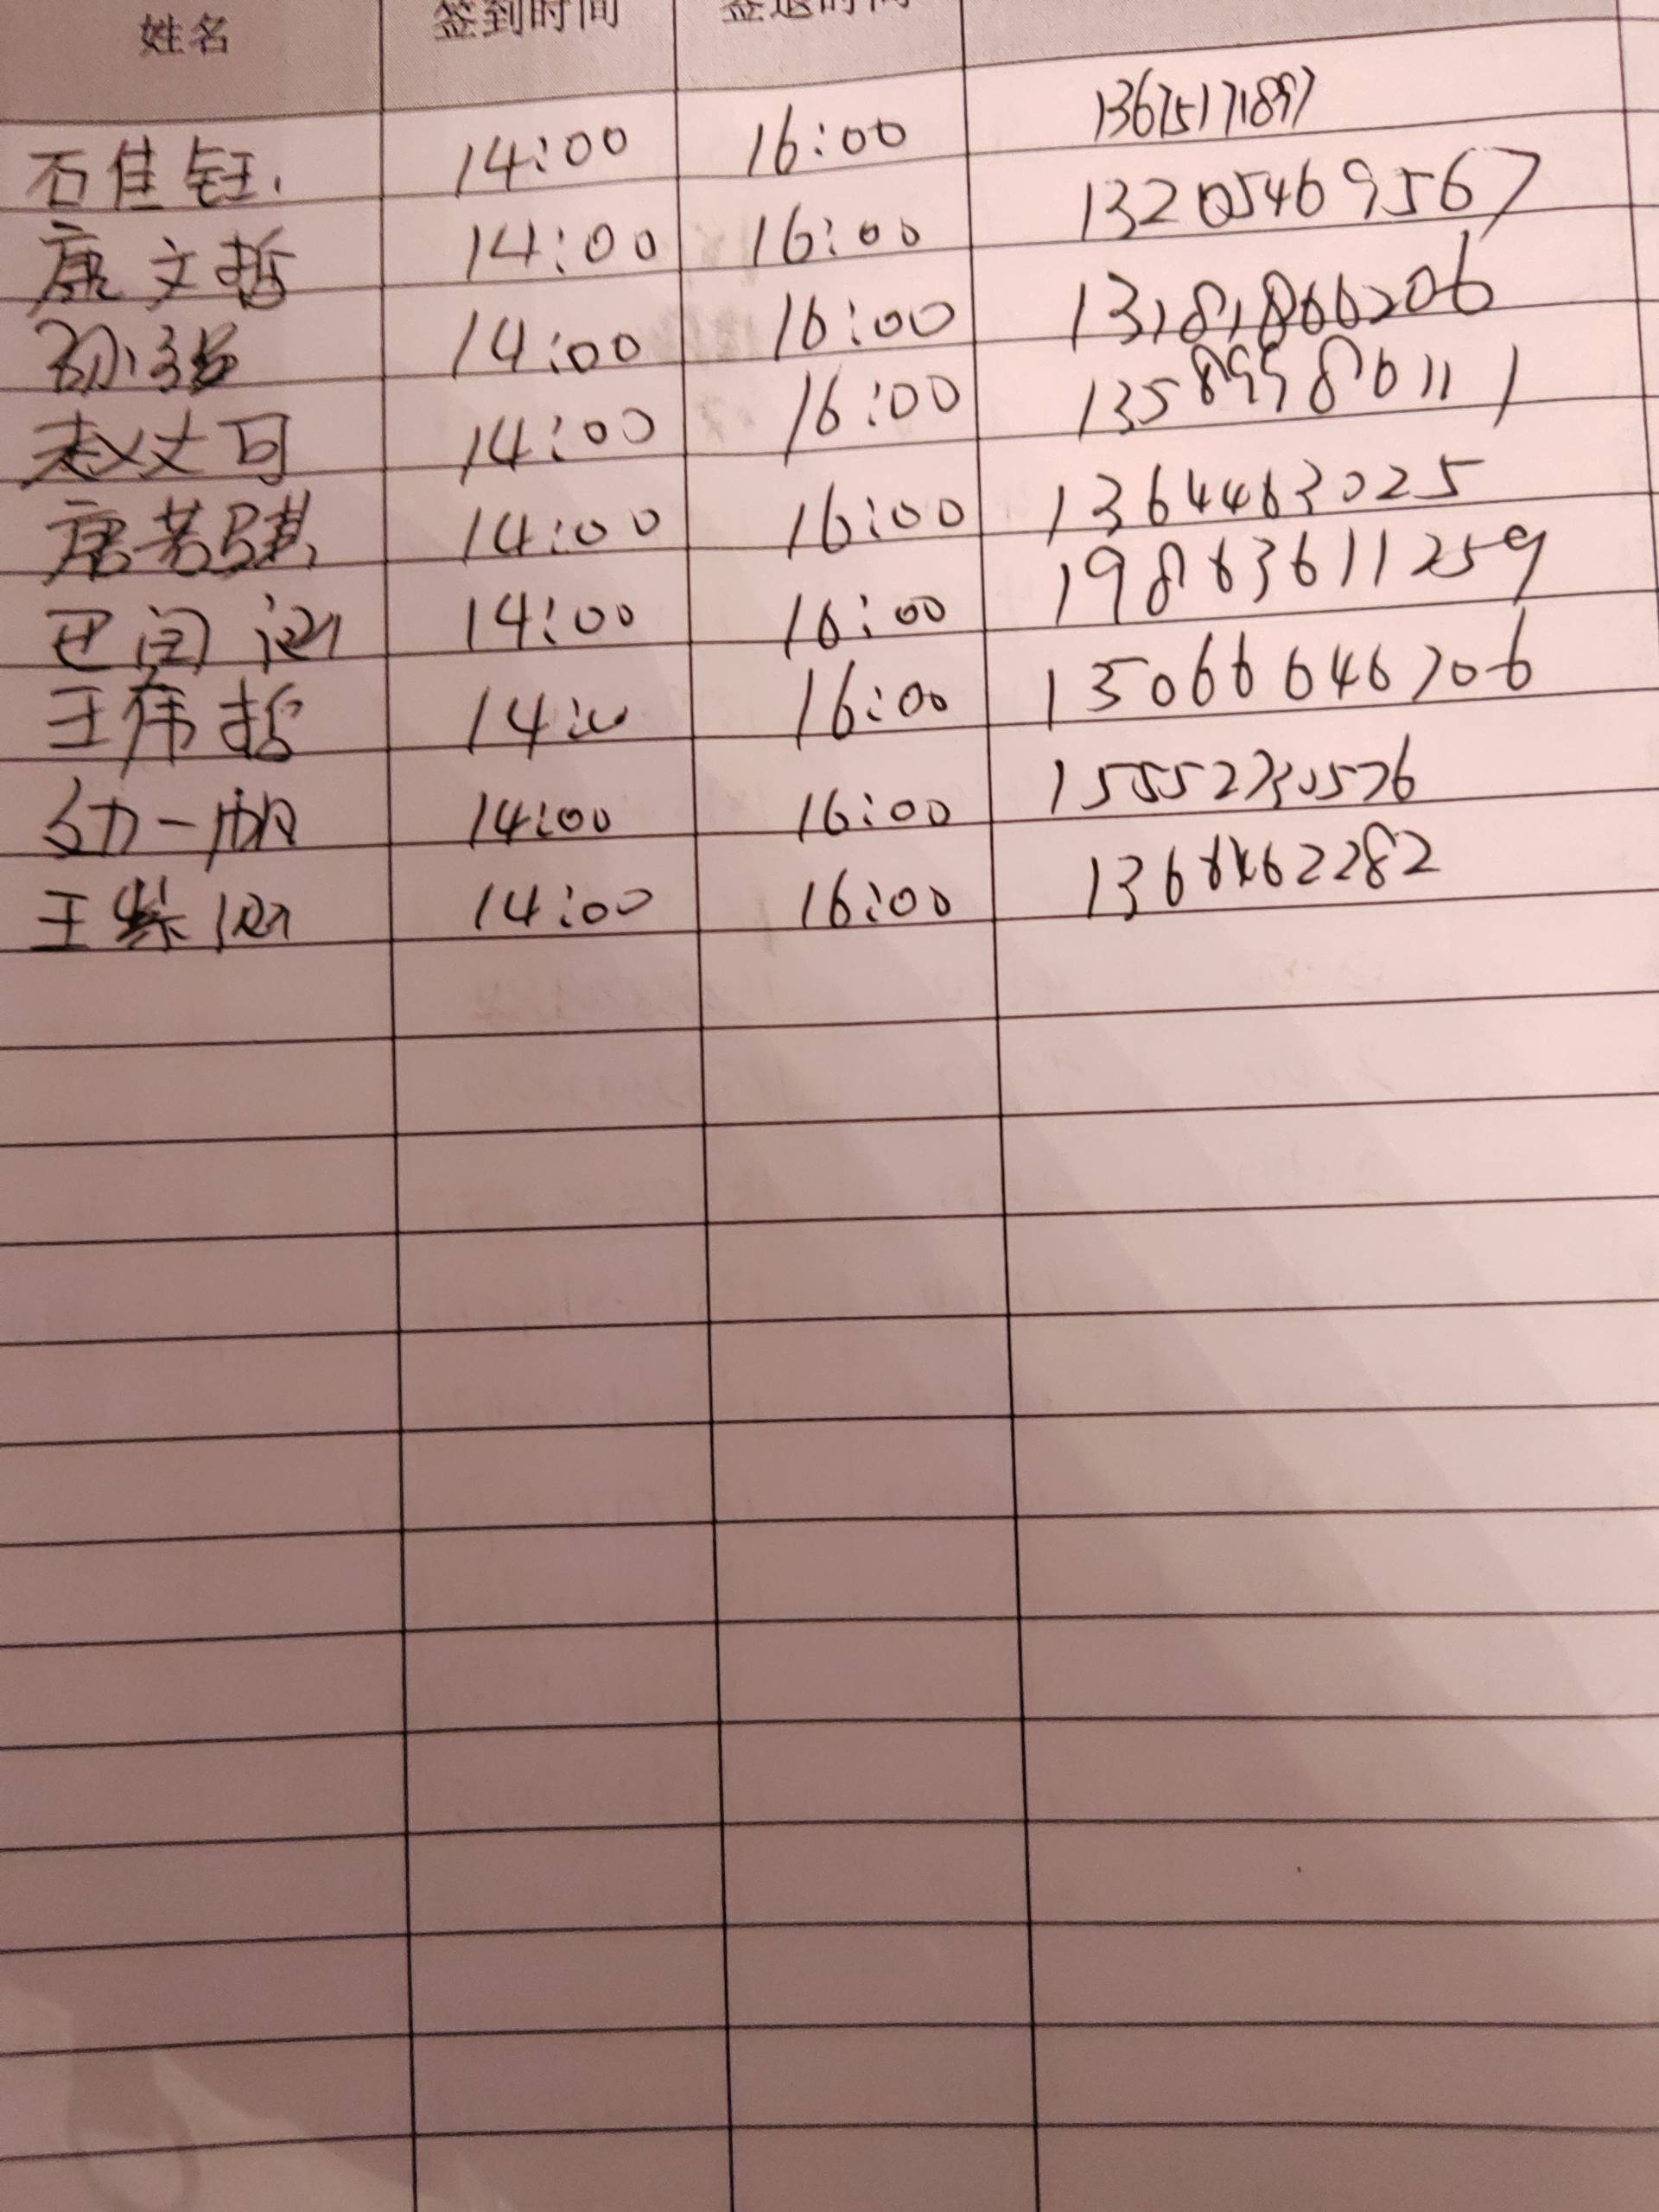 姓名 签到时间 签退时间
石佳钰 14:00 16:00 13675171897
唐文哲 14:00 16:00 13205469567
孙强 14:00 16:00 13181866206
赵文可 14:00 16:00 13589980111
唐若琪 14:00 16:00 13644463025
14:00 16:00 19863611259
王伟哲 14:00 16:00
一帆 14:00 16:00
王紫 14:00 16:00